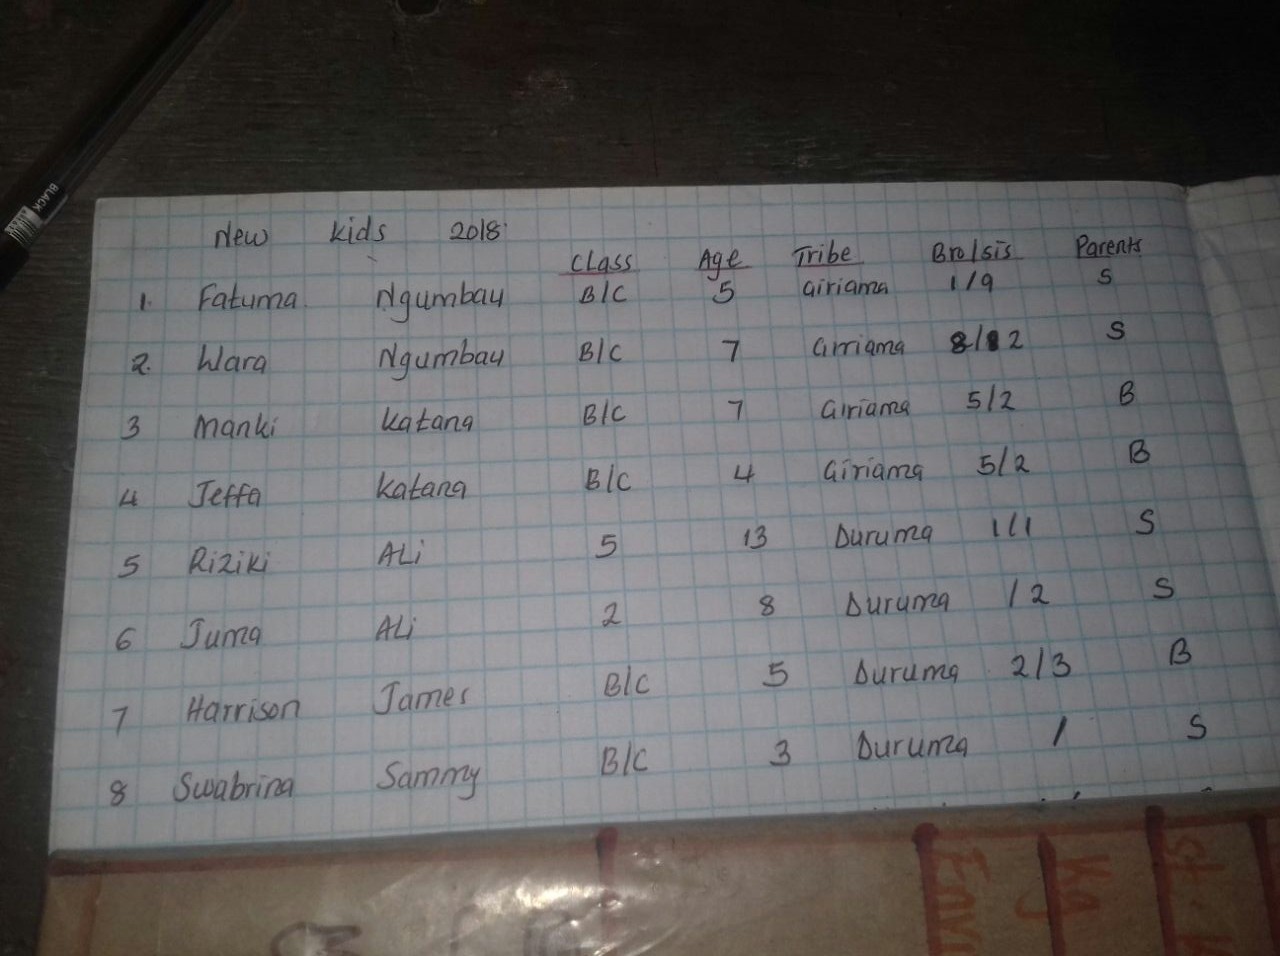 New kids 2018
Class Age Tribe Bro/sis Parents
1. Fatuma Ngumbau B/C 5 Giriama 1/9 S
2. Wara Ngumbau B/C 7 Girriama 8/2 S
3 Manki Katana B/C 7 Giriama 5/2 B
4 Jeffa Katana B/C 4 Giriama 5/2 B
5 Riziki ALi 5 13 Duruma 1/1 S
6 Juma ALi 2 8 Duruma /2 S
7 Harrison James B/C 5 Duruma 2/3 B
8 Swabrina Sammy B/C 3 Duruma / S
BLACK